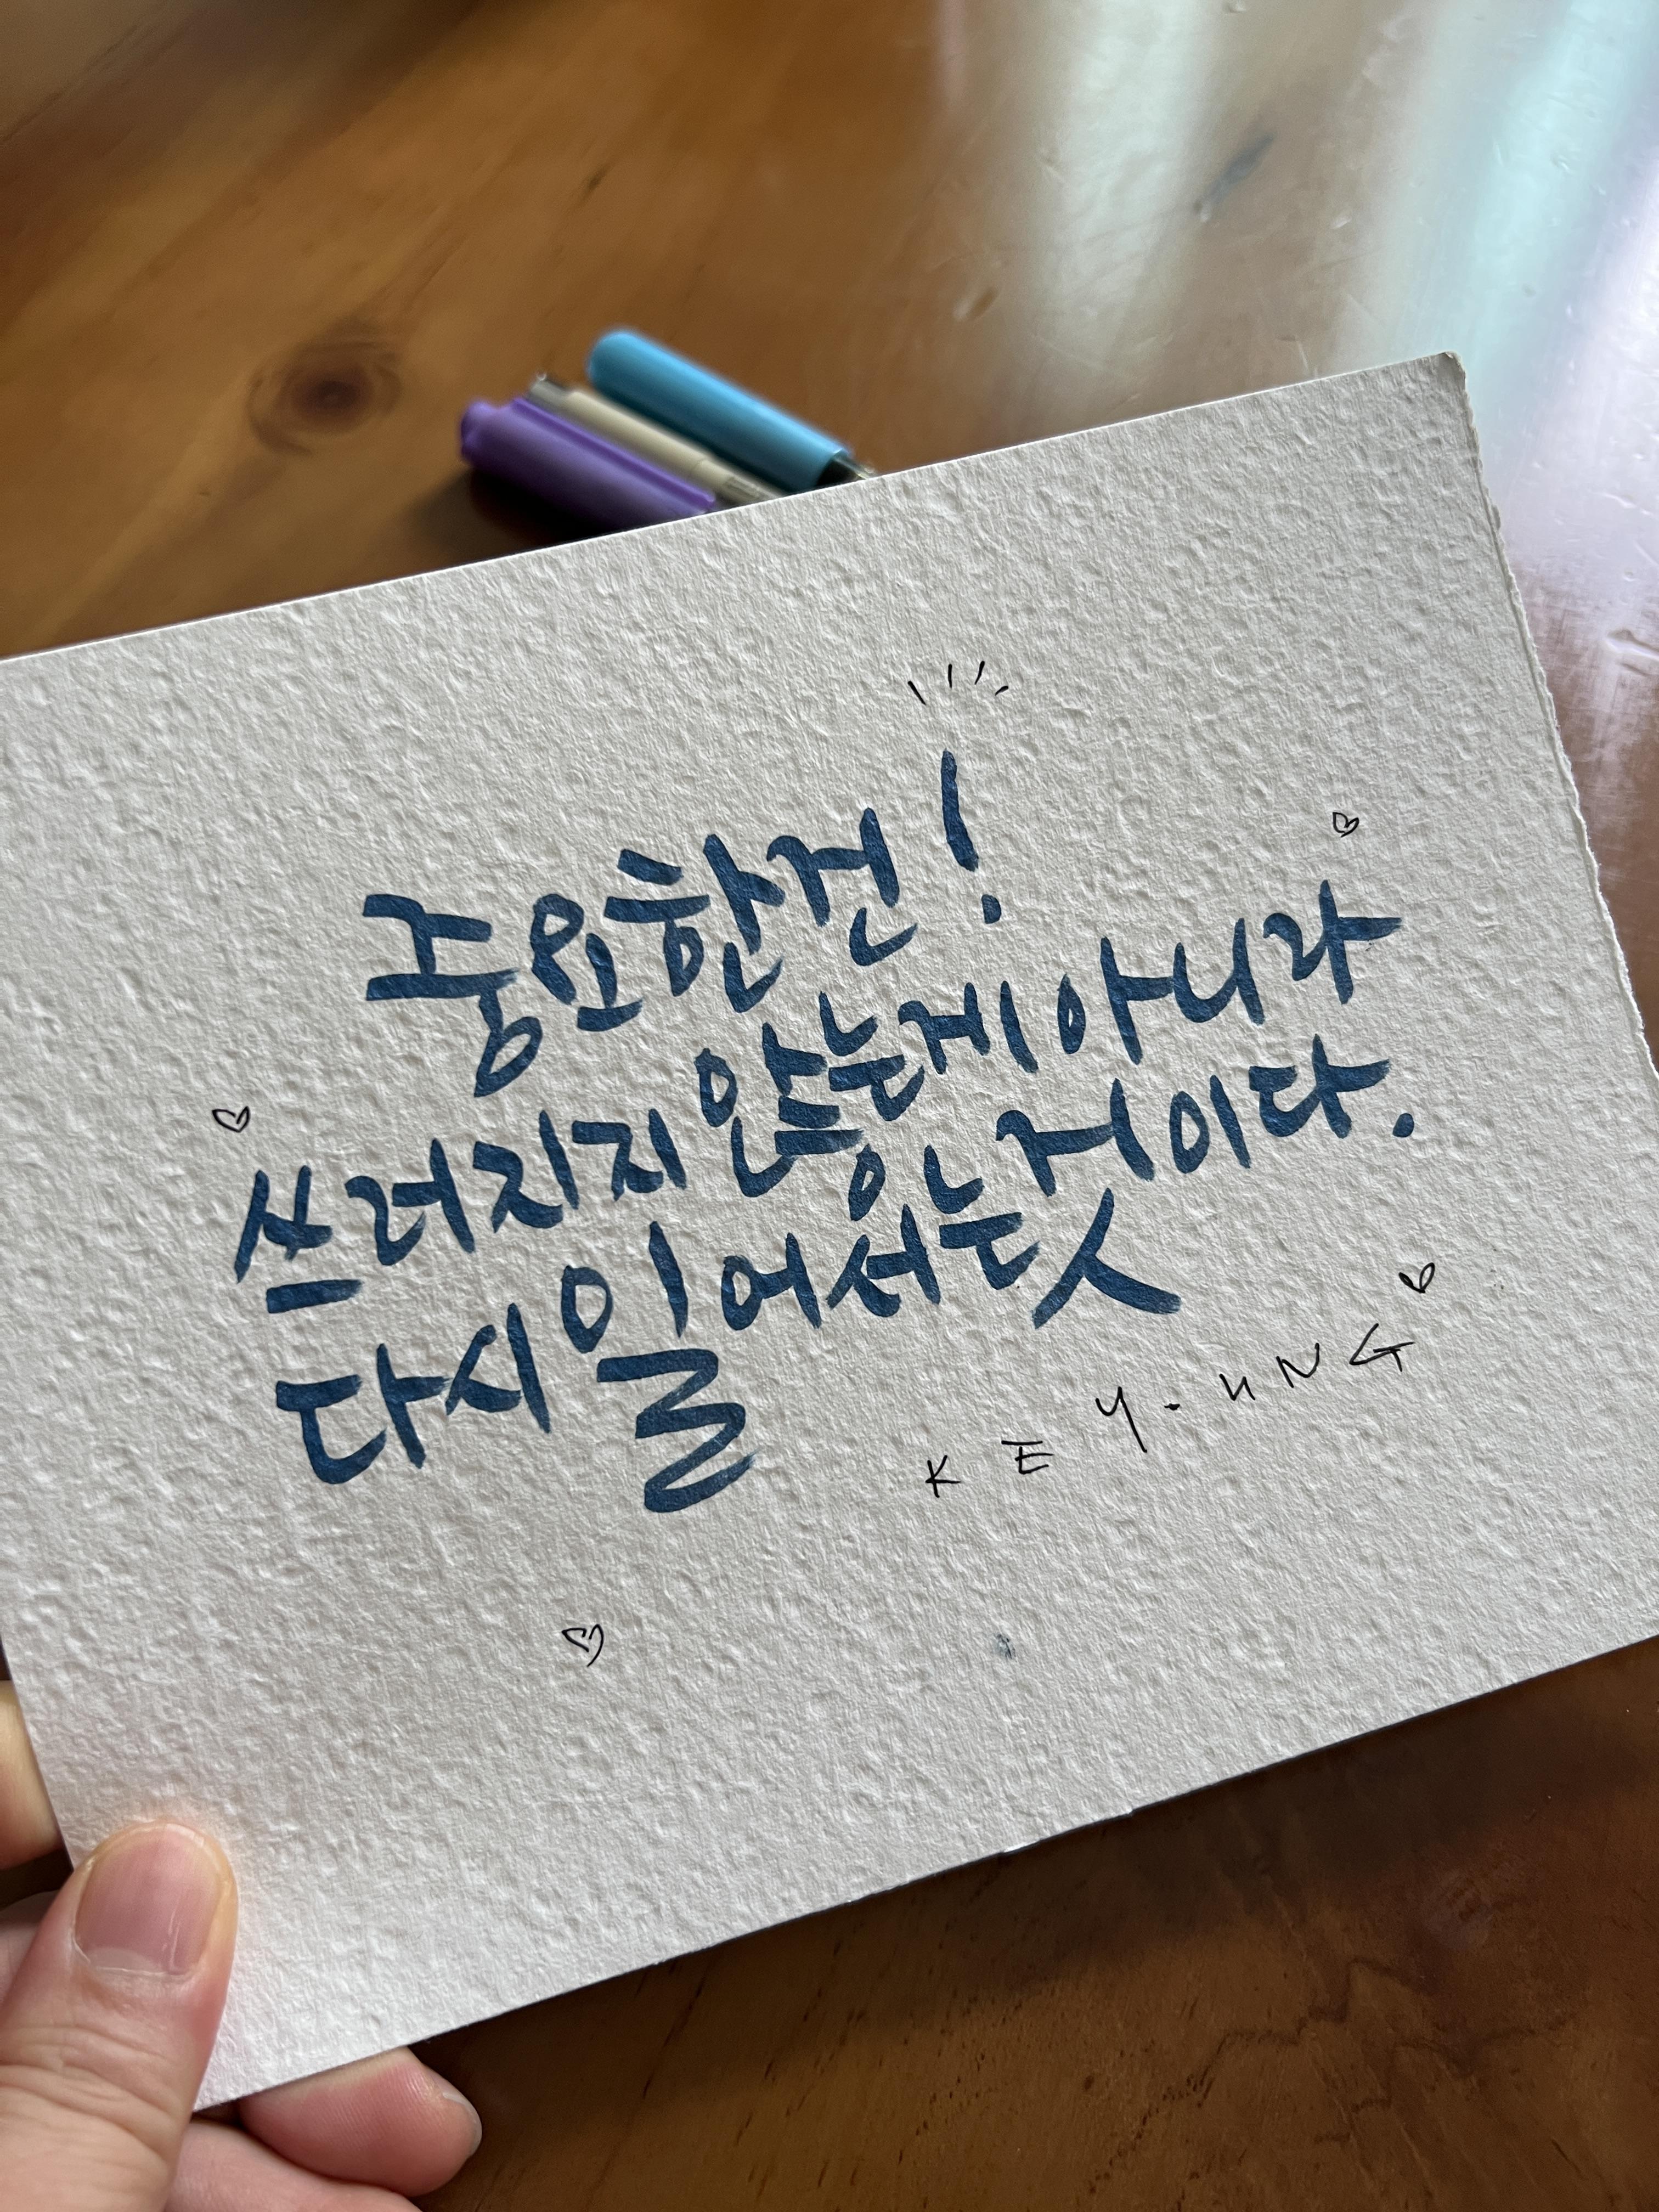 중요한건!
쓰러지지 않는게 아니라
다시 일어서는 것이다.
KEY.UNG